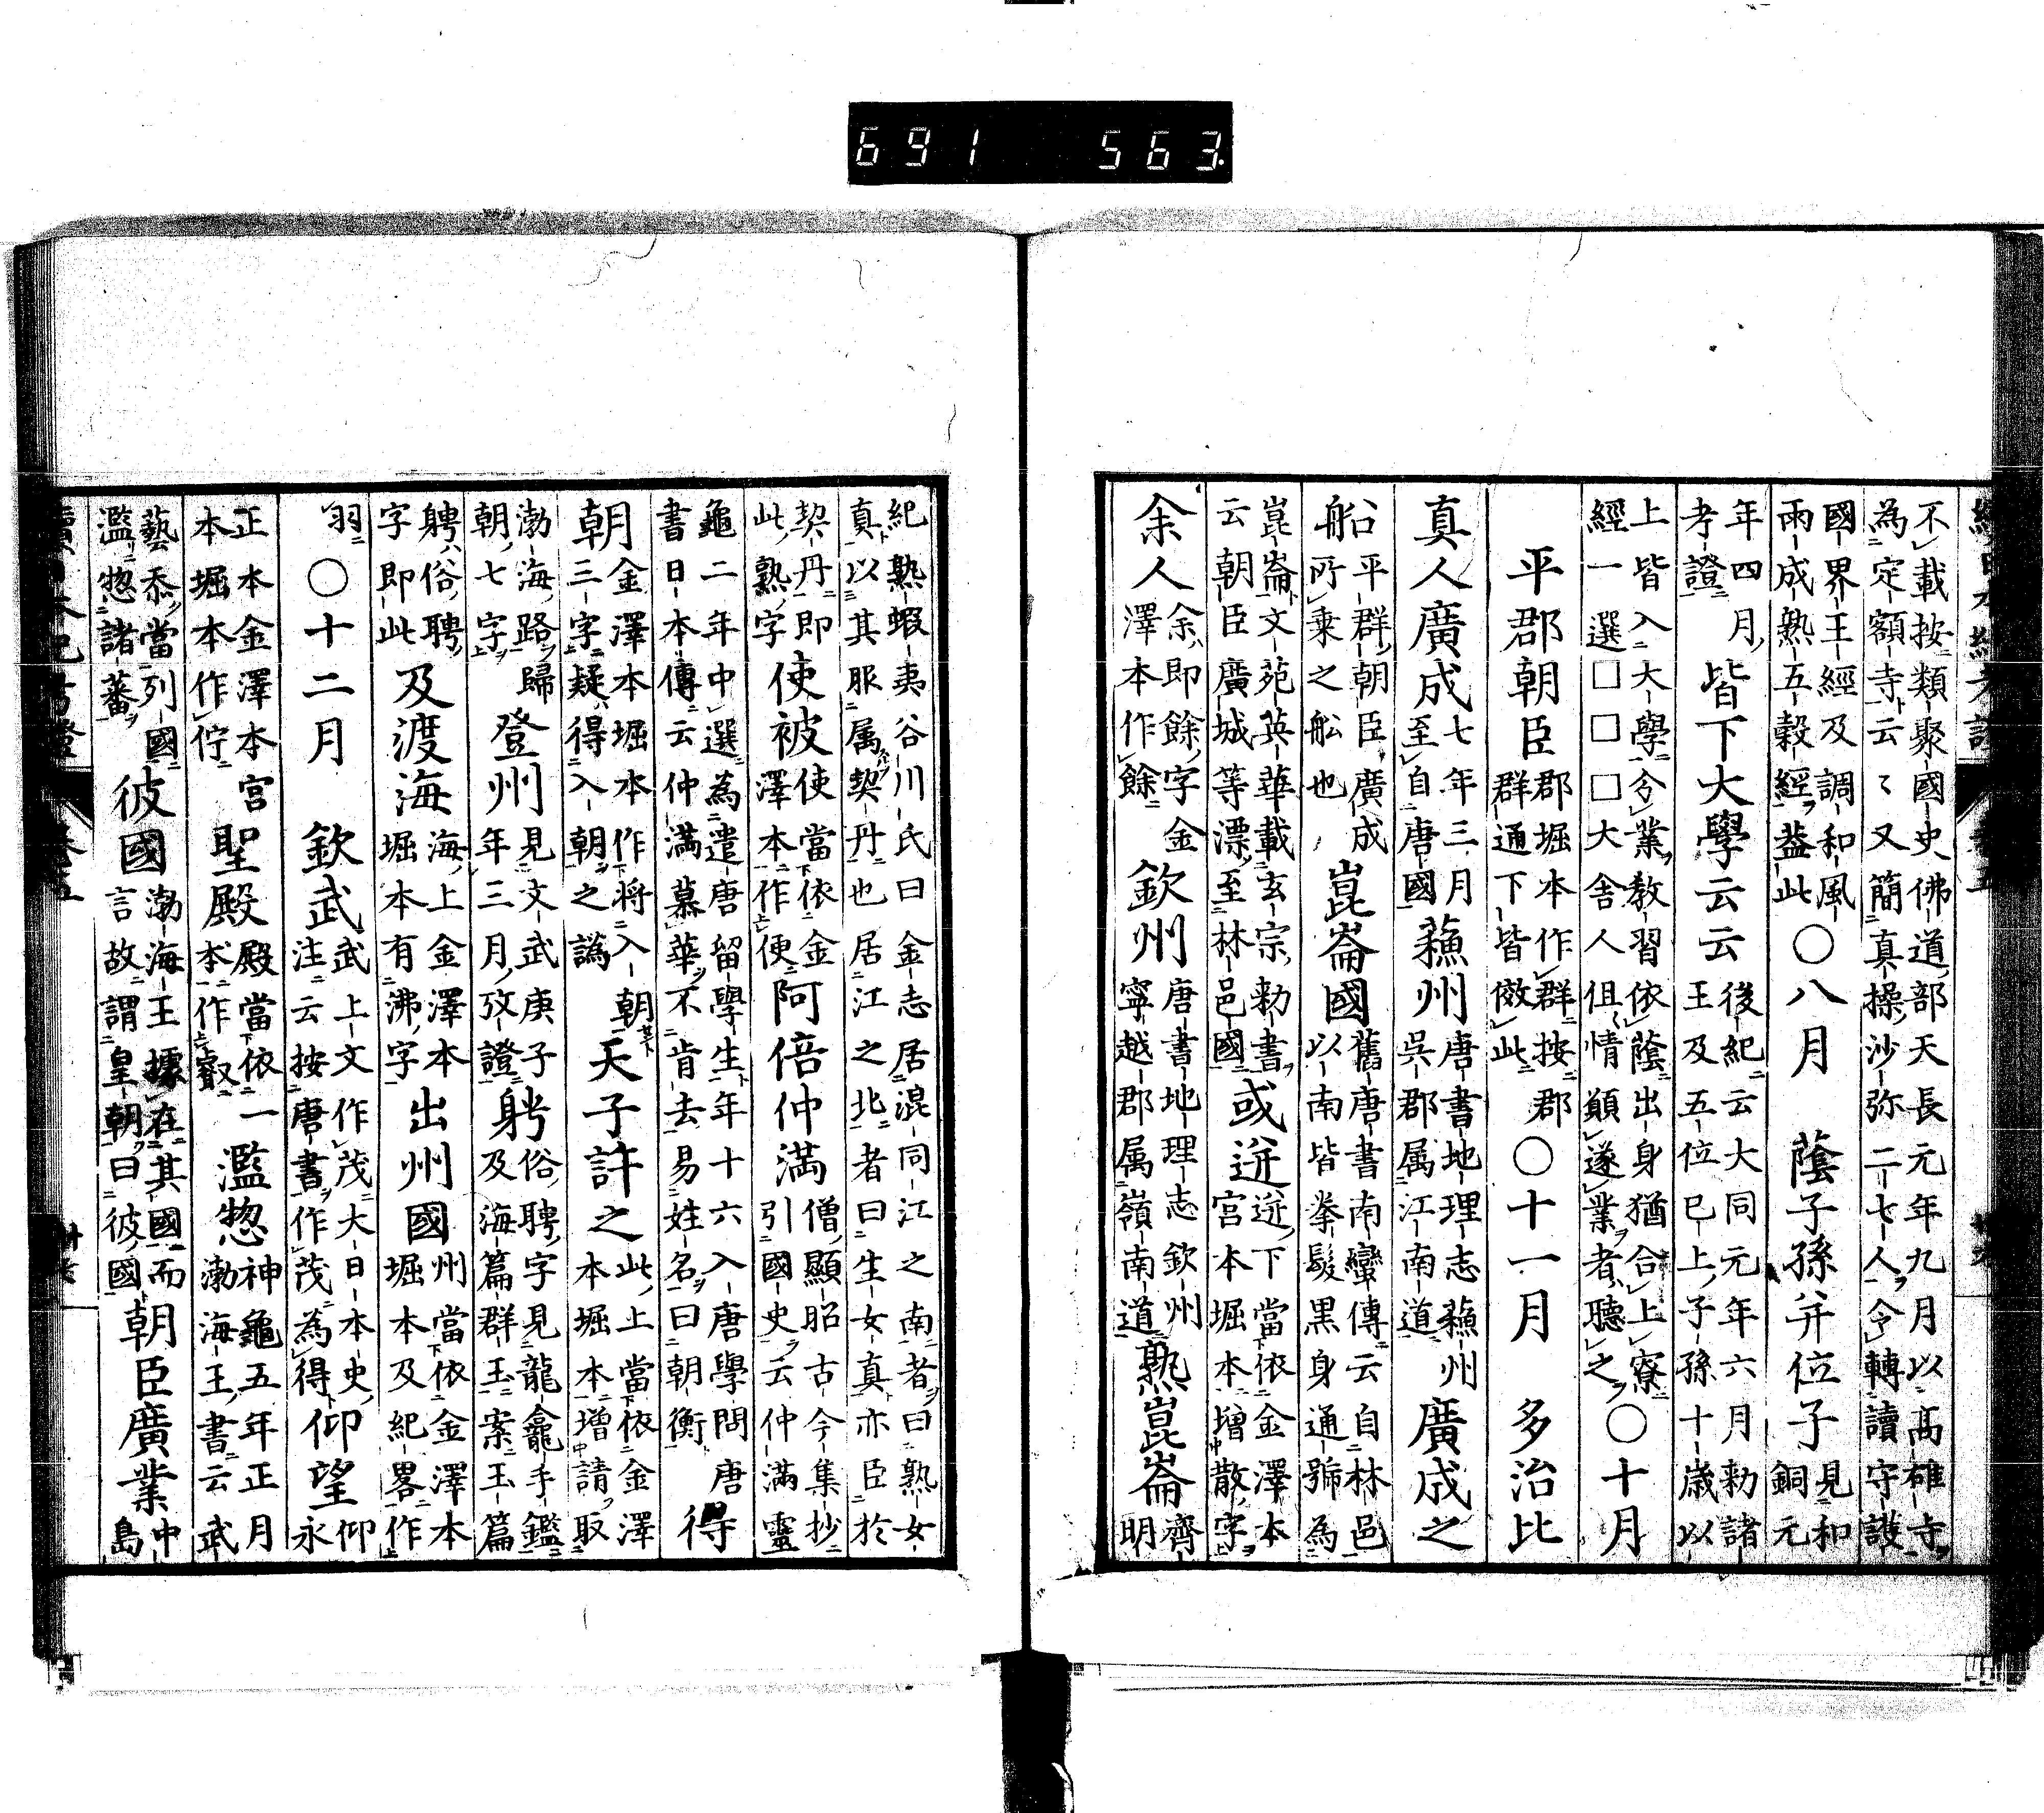 不載按類聚國史佛道部天長元年九月以高雄寺
為定額寺云〻又簡真操沙弥二七人令轉讀守護
國界王經及調和風雨成熟五穀經蓋此○八月　蔭子孫并位子見和銅元
年四月考證皆下大學云云後紀云大同元年六月勅諸王及五位已上子孫十歳以
上皆入大學令業教習依蔭出身猶合上寮經一選□□□大舍人但情願遂業者聽之○十月
平郡朝臣郡堀本作群按郡群通下皆倣此○十一月　多治比
真人廣成七年三月至自唐國蘓州唐書地理志蘓州吳郡属江南道廣成之
船平群朝臣廣成所乗之舩也崑崙國舊唐書南蠻傳云自林邑以南皆拳髮黒身通號為
崑崙文苑英華載玄宗勅書云朝臣廣城等漂至林邑國或迸迸下當依金澤本宮本堀本増散字
余人余即餘字金澤本作餘欽州唐書地理志欽州寧越郡属嶺南道熟崑崙齊明
紀熟蝦夷谷川氏曰金志居混同江之南者曰熟女
真以其服属契丹也居江之北者曰生女真亦臣於
契丹即此熟字使被使當依金澤本作便阿倍仲満僧顯昭古今集抄引國史云仲満靈
龜二年中選為遣唐留學生年十六入唐學問唐書日本傳云仲満慕華不肯去易姓名曰朝衡得
朝金澤本堀本作将入朝三字疑得入朝之譌天子許之此上當依金澤本堀本増請取
渤海路歸朝七字登州見文武庚子年三月攷證躬俗聘字見龍龕手鑑及海篇群玉案玉篇
聘俗聘字即此及渡海海上金澤本堀本有沸字出州國州當依金澤本堀本及紀畧作
羽○十二月　欽武武上文作茂大日本史注云按唐書作茂為得仰望仰永
正本金澤本宮本堀本作佇聖殿殿當依一本作叡濫惣神龜五年正月渤海王書云武
藝忝當列國濫惣諸蕃彼國渤海王據在其國而言故謂皇朝曰彼國朝臣廣業中島
691 563